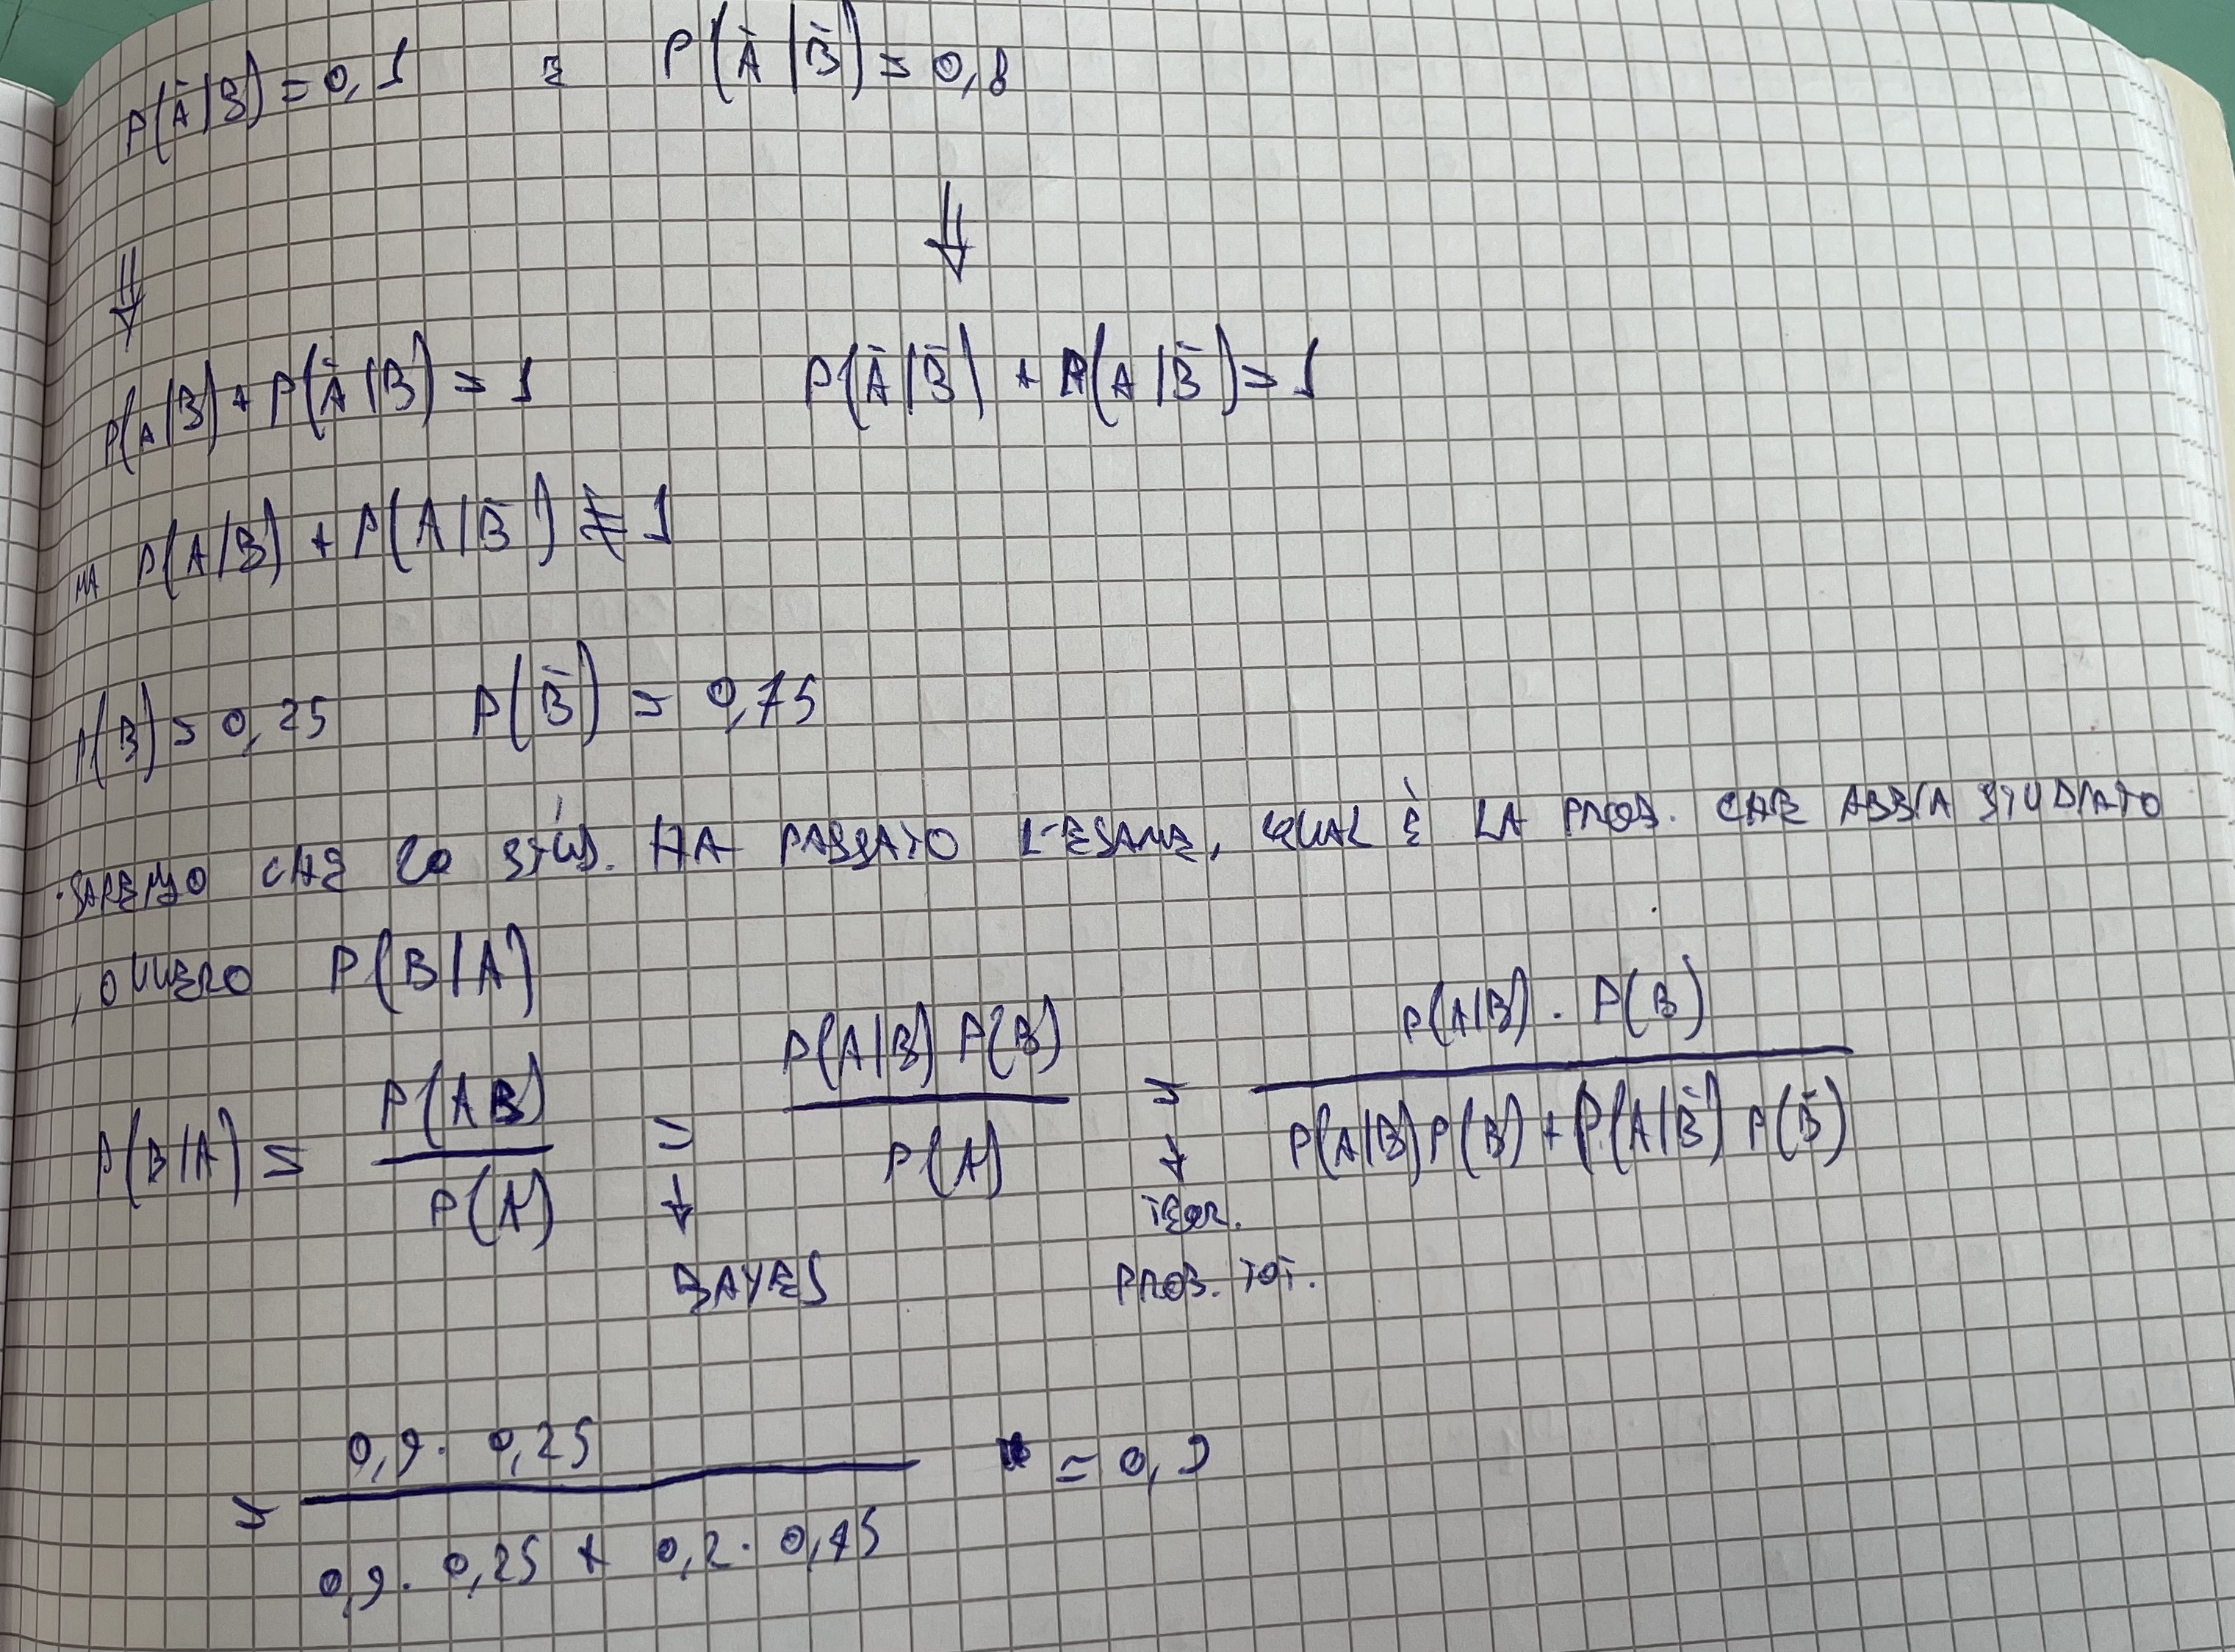 P(Ā|B) = 0,1 E P(Ā|B̄) = 0,8
⇓ ⇓
P(A|B) + P(Ā|B) = 1 P(Ā|B̄) + P(A|B̄) = 1
MA P(A|B) + P(A|B̄) ≠ 1
P(B) = 0,25 P(B̄) = 0,75
· SAPENDO CHE LO STUD. HA PASSATO L'ESAME, QUAL È LA PROB. CHE ABBIA STUDIATO
, OVVERO P(B|A)
P(B|A) = P(AB) / P(A) = P(A|B) P(B) / P(A) = P(A|B) · P(B) / P(A|B) P(B) + P(A|B̄) P(B̄)
↓ ↓
BAYES TEOR.
PROB. TOT.
= 0,9 · 0,25 / 0,9 · 0,25 + 0,2 · 0,75 = 0,9